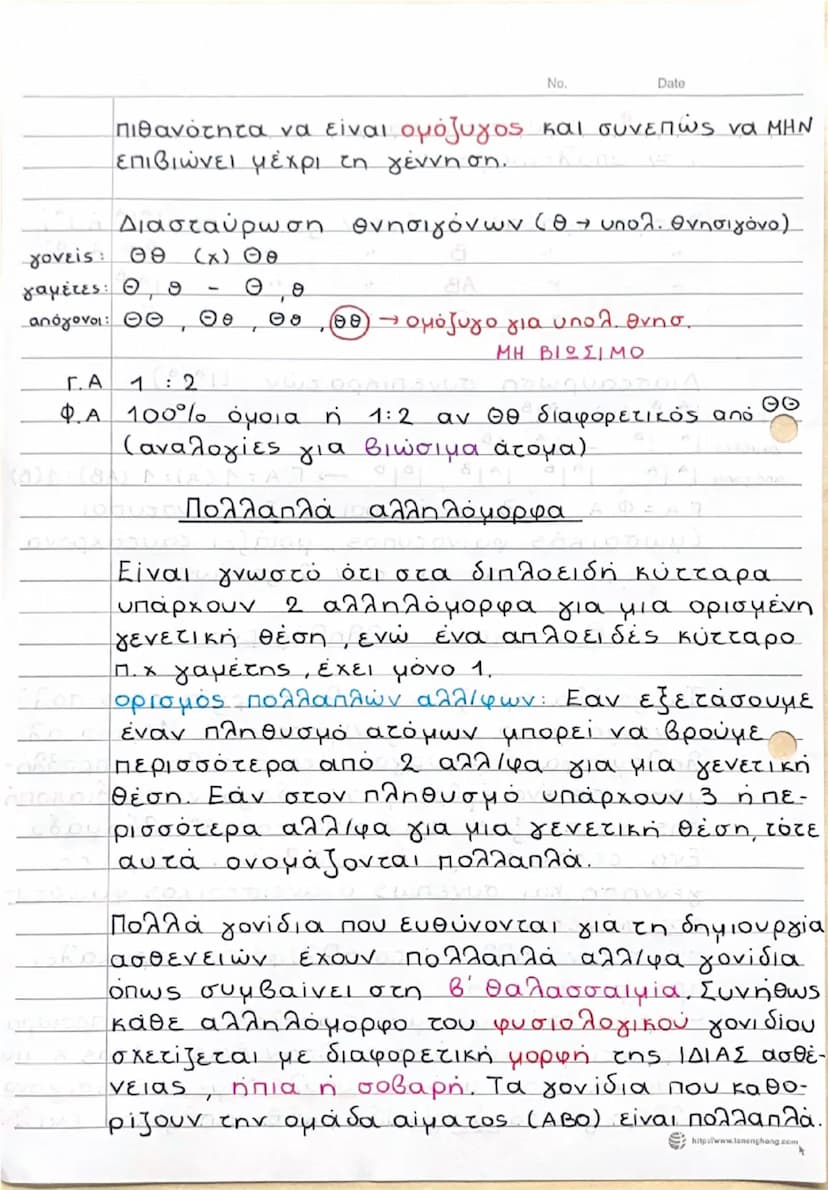 No. Date
πιθανότητα να είναι ομόζυγος και συνεπώς να ΜΗΝ
επιβιώνει μέχρι τη γέννηση.
Διασταύρωση θνησιγόνων (θ → υπολ. θνησιγόνο)
γονείς: Θθ (x) Θθ
γαμέτες: Θ, θ - Θ, θ
απόγονοι: ΘΘ, Θθ, Θθ, θθ → ομόζυγο για υπολ. θνησ.
ΜΗ ΒΙΩΣΙΜΟ
Γ.Α 1 : 2
Φ.Α 100% όμοια ή 1:2 αν Θθ διαφορετικός από ΘΘ
(αναλογίες για βιώσιμα άτομα)
Πολλαπλά αλληλόμορφα
Είναι γνωστό ότι στα διπλοειδή κύτταρα
υπάρχουν 2 αλληλόμορφα για μια ορισμένη
γενετική θέση, ενώ ένα απλοειδές κύτταρο
π.χ γαμέτης, έχει μόνο 1.
ορισμός πολλαπλών αλλ/φων: Εαν εξετάσουμε
έναν πληθυσμό ατόμων μπορεί να βρούμε
περισσότερα από 2 αλλ/φα για μια γενετική
θέση. Εάν στον πληθυσμό υπάρχουν 3 ή πε-
ρισσότερα αλλ/φα για μια γενετική θέση, τότε
αυτά ονομάζονται πολλαπλά.
Πολλά γονίδια που ευθύνονται για τη δημιουργία
ασθενειών έχουν πολλαπλά αλλ/φα γονίδια
όπως συμβαίνει στη β' θαλασσαιμία. Συνήθως
κάθε αλληλόμορφο του φυσιολογικού γονιδίου
σχετίζεται με διαφορετική μορφή της ΙΔΙΑΣ ασθέ-
νειας, ήπια ή σοβαρή. Τα γονίδια που καθο-
ρίζουν την ομάδα αίματος (ΑΒΟ) είναι πολλαπλά.